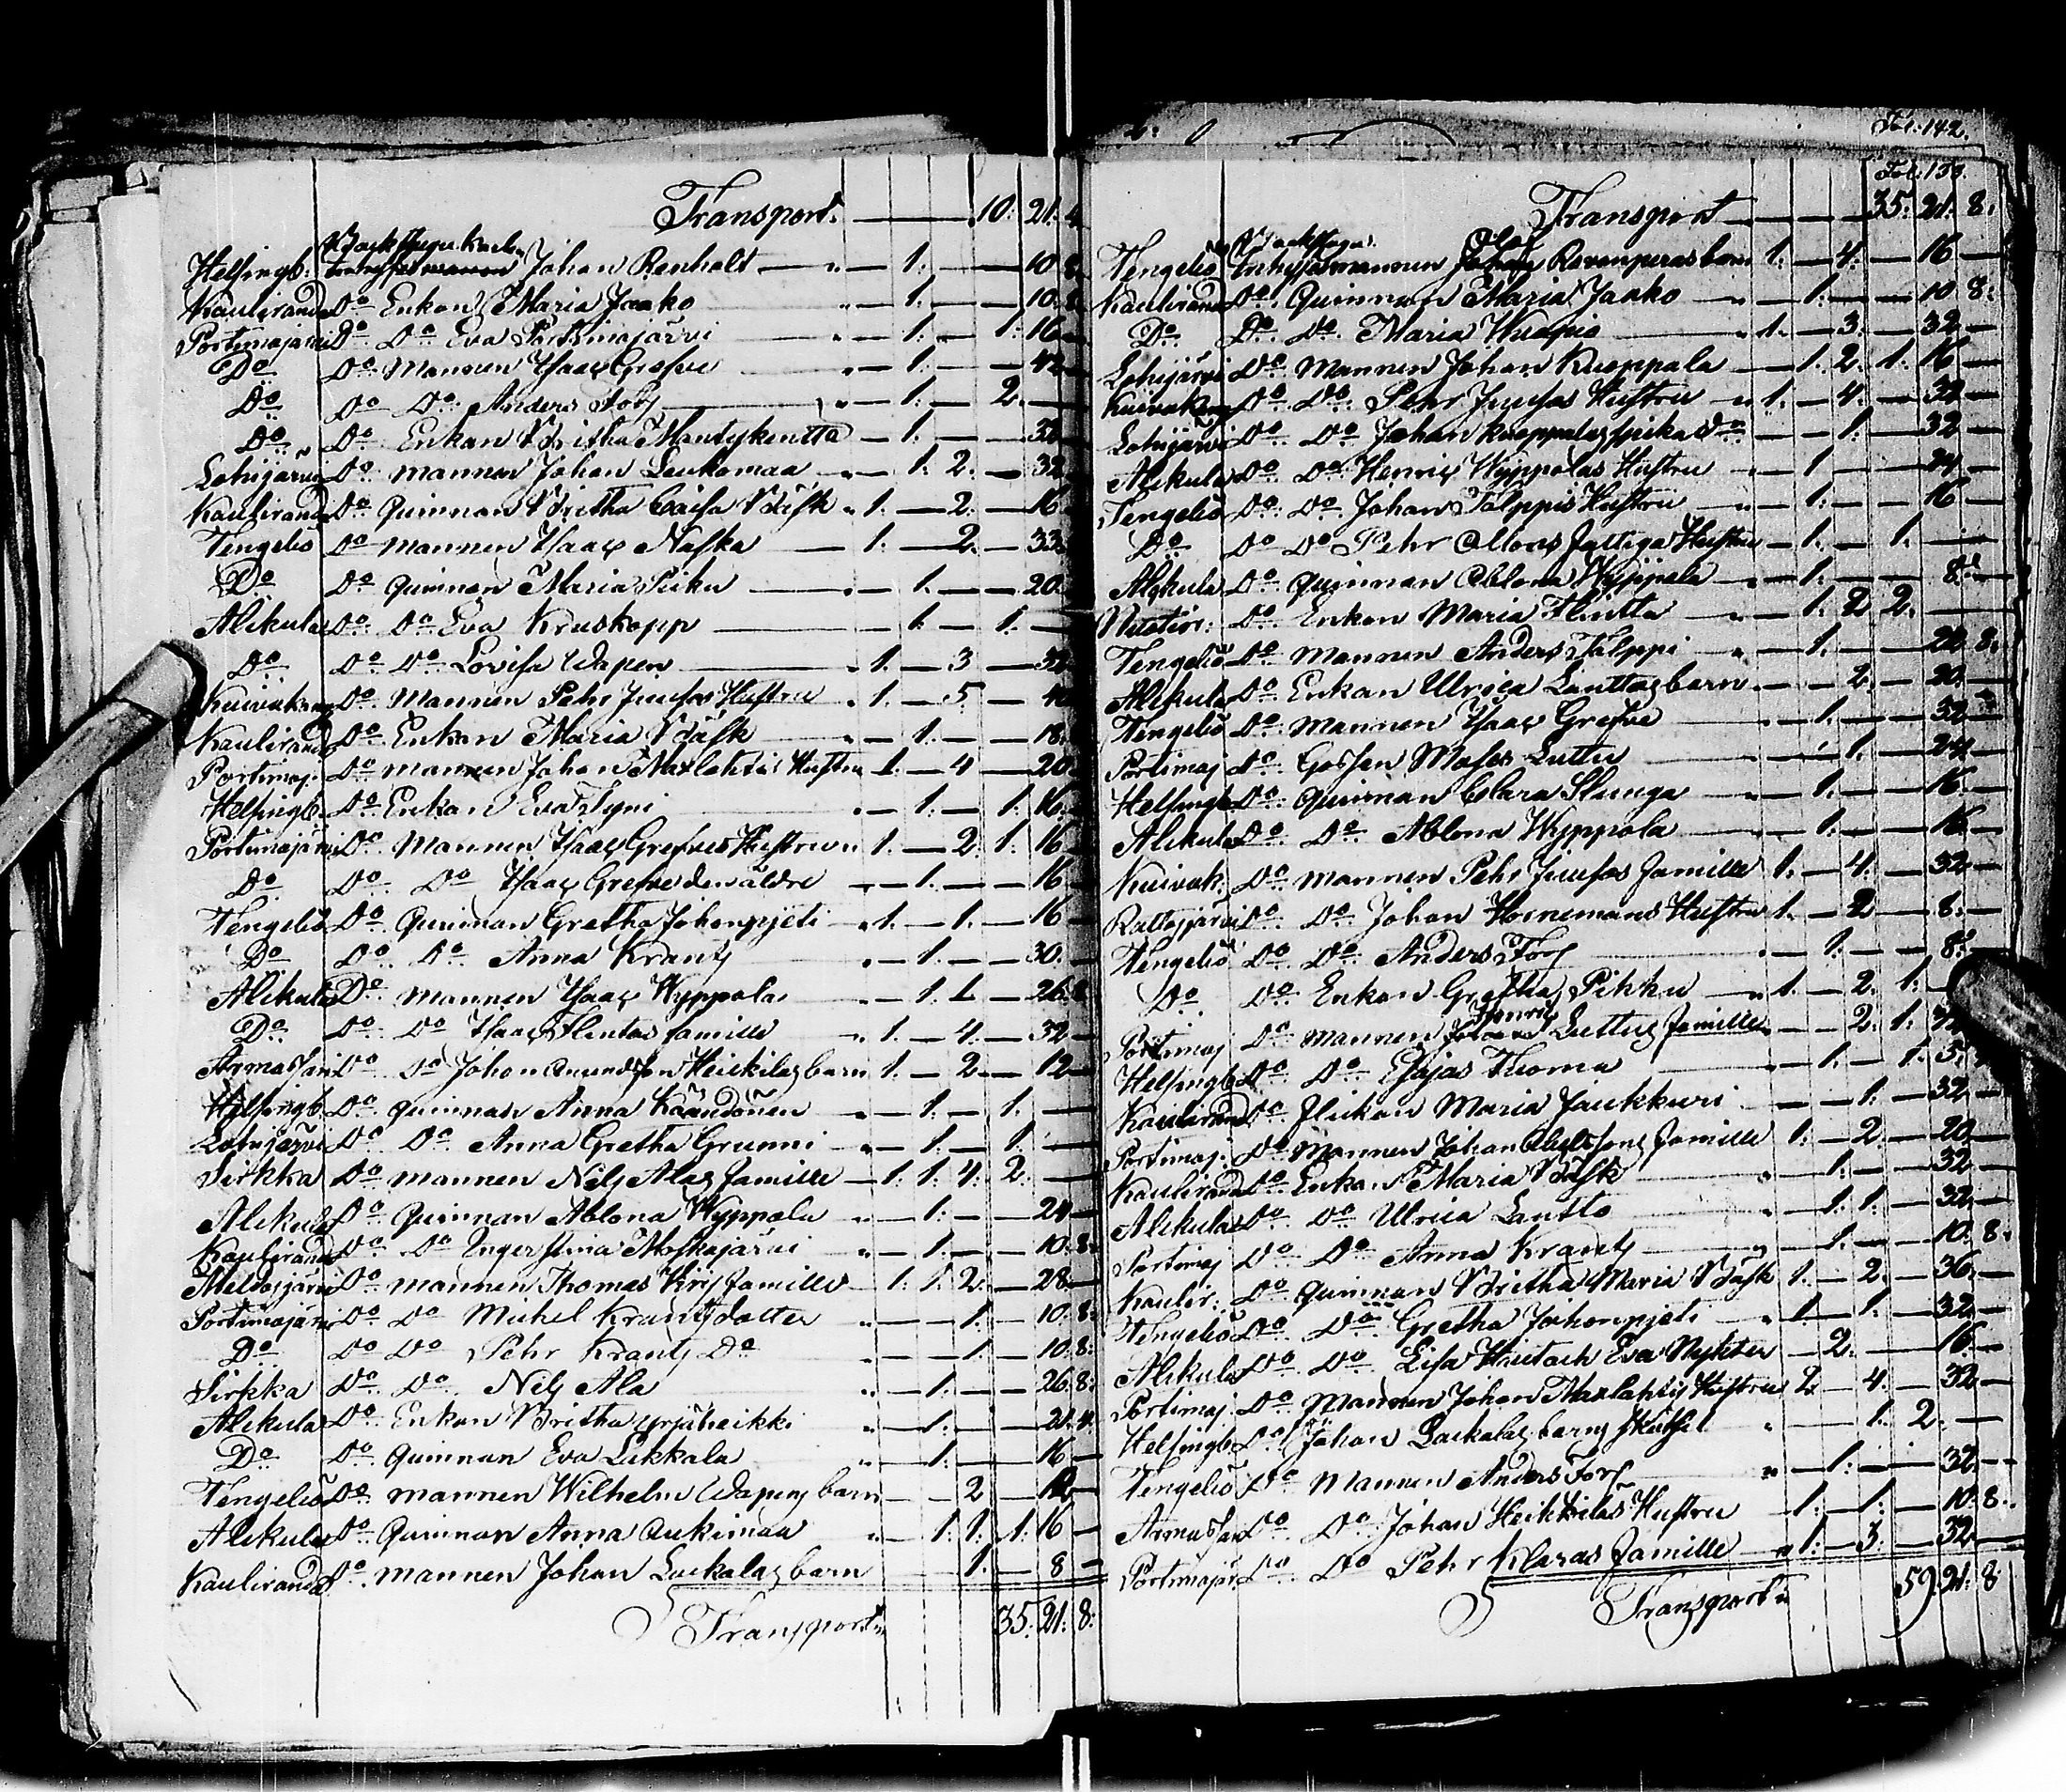 Transport. — 10: 21: 4
Helsingb: Johan Renhalt — 1: — 10: 8
Kauliranda Do Enkan Maria Jaako — 1: — 10: 8
Portimojärvi Do Do Eva Portimojärvi — 1: — 1: 16 —
Do Do Mannen Isaac Grefve — 1: — 42 —
Do Do Do Anders Fors — 1: — 2: —
Do Do Enkan Britha Mantykentta — 1: — 32
Lohijärvi Do mannen Johan Laukamaa — 1: 2: — 32
Kaulirand Do Quinnan Britha Caisa Bäsk 1: — 2: — 16
Tengeliö Do mannen Isaac Naska — 1: — 2: — 33:
Do Do Quinnan Maria Piiku — 1: — 20:
Alikula Do Do Eva Kruskopp — 1: — 1: —
Do Do Do Lovisa Wapen — 1: — 3 — 32
Kuivakang Do Mannen Pehr Juusos Hustru 1: — 5 — 4
Kaulirand Do Enkan Maria Bäsk — 1: — 18:
Portimoj: Do mannen Johan Maxlahtis Hustru 1: — 4 — 20:
Helsingb. Do Enkan Eva Tyni — 1: — 1: 16:
Portimojärvi Do Mannen Isaac Grefves Hustru 1: — 2: 1: 16
Do Do Do Isaac Grefve den äldre — 1: — 16
Tengeliö Do Quinnan Gretha Johanpjeti 1: — 1: — 16
Do Do Do Anna Krantz — 1: — 30:
Alikula Do mannen Isaac Wyppola — 1: 1 — 26: 8
Do Do Do Isaac Flintas familie 1: — 4: — 32
Armassari Do Do Johan Heickilas barn 1: — 2: — 12
Helsingb. Do quinnan Anna — 1: — 1: —
Lohijärvi Do Do Anna Gretha Grunni — 1: — 1: —
Sirkka Do mannen Nils Alas familie — 1: 1: 4: 2: —
Alikula Do Quinnan Ablona Wyppola — 1: — 24 —
Kaulirand Do Do Inger Stina Moskajärvi — 1: — 10: 8:
Meltosjärvi Do mannen Thomas familie — 1: 1: 2: — 28 —
Portimojärvi Do Do Michel Krantz dotter — 1: — 10: 8:
Do Do Do Pehr Krantz Do — 1: — 10: 8:
Sirkka Do Do Nils Ala — 1: — 26: 8:
Alikula Do Enkan Britha Yrjäheikki — 1: — 21: 4.
Do Do Quinnan Eva Lukkala — 1: — 16 —
Tengeliö Do mannen Wilhelm Wapens barn — 2 — 12 —
Alikula Do Quinnan Anna Aukimaa — 1: 1: 1: 16 —
Kaulirand Do mannen Johan Luckalas barn 1: — 8 —
Transport 35: 21: 8:
Fol: 142.
Fol: 133.
Transport — 35: 21: 8:
Tengeliö Inhysesmannen Olof Ravenperas barn 1: — 4: — 16 —
Kaulirand Do Quinnan Maria Jaako — 1: — 10 8:
Do Do Do Maria Kuopio — 1: — 3: — 32 —
Lohijärvi Do Mannen Johan Kuoppala — 1: 2: 1: 16 —
Kuivakang Do Do Pehr Juusos Hustru 1: — 4: — 32 —
Lohijärvi Do Do Johan Kuoppalas — 1: — 32 —
Alikula Do Do Henric Wyppolas Hustru 1 — 24 —
Tengeliö Do Do Johan Talppis Hustru — 1: — 16 —
Do Do Do Pehr Ollons fattiga Hustru — 1: — 1: —
Alikula Do quinnan Ablona Wyppola — 1: — 8: —
Do Enkan Maria Flintta — 1: 2 2: —
Tengeliö Do Mannen Anders Talppi — 1: — 20 8:
Alikula Do Enkan Ulrica Lanttos barn — 2: — 20 —
Tengeliö Do Mannen Isaac Grefve — 1: — 32 —
Portimoj Do Gossen Moses Luttu — 1: — 24 —
Helsingb Do Quinnan Clara Slunga — 1: — 16: —
Alikula Do Do Ablona Wyppola — 1: — 16 —
Kuivak: Do mannen Pehr Juusos familie 1: — 4: — 32 —
Rattosjärvi Do Do Johan Hornemans Hustru 1: — 2 — 8: —
Tengeliö Do Do Anders Fors — 1: — 8: —
Do Do Enkan Gretha Pikku — 1: — 2: 1: —
Portimoj Do mannen Henric Luttus familie — 2: 1:
Helsingb Do Do Esajas Thoma — 1: — 1: 5:
Kaulirand Do Flickan Maria Jaukkuri — 1: — 32 —
Portimoj: Do Mannen Johan familie 1: — 2: — 20 —
Kaulirand Do Enkan Maria Bäsk — 1: — 32 —
Alikula Do Do Ulrica Lantto — 1: 1: — 32 —
Portimoj Do Do Anna Krantz — 1: — 10: 8:
Kaulir: Do Quinnan Britha Maria Bäsk 1: — 2: — 36: —
Tengeliö Do Do Gretha Johanpjeti 1: — 1: — 32 —
Alikula Do Do Lisa och Eva Nykter — 2: — 16: —
Portimoj: Do Mannen Johan Maxlahtis Hustru 1: — 4: — 32 —
Helsingb Do Johan Luckalas barns skuthsel — 1: 2: —
Tengeliö Do Mannen Anders Fors — 1: — 32 —
Armassar Do Do Johan Heikkilas Hustru 1: — 1: — 10: 8:
Portimojär Do Do Pehr Klaras familie 1: — 3: — 32 —
Transport 59: 21: 8